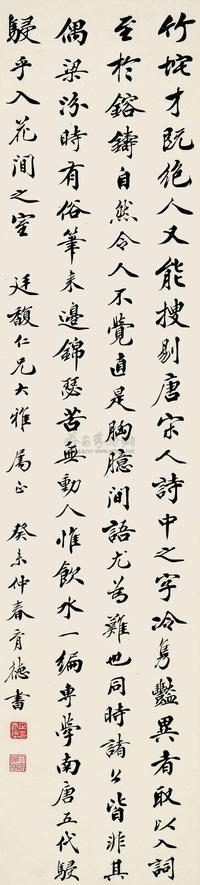 竹垞才既絶人又能搜剔唐宋人詩中之字冷隽豔異者取以入詞
至於鎔鑄自然令人不覺直是胸臆間語尤為難也同時諸公皆非其
偶梁汾時有俗筆朱邊錦瑟苦無動人惟飲水一編專學南唐五代駸
駸乎入花間之室 廷馥仁兄大雅属正 癸未仲春育德書